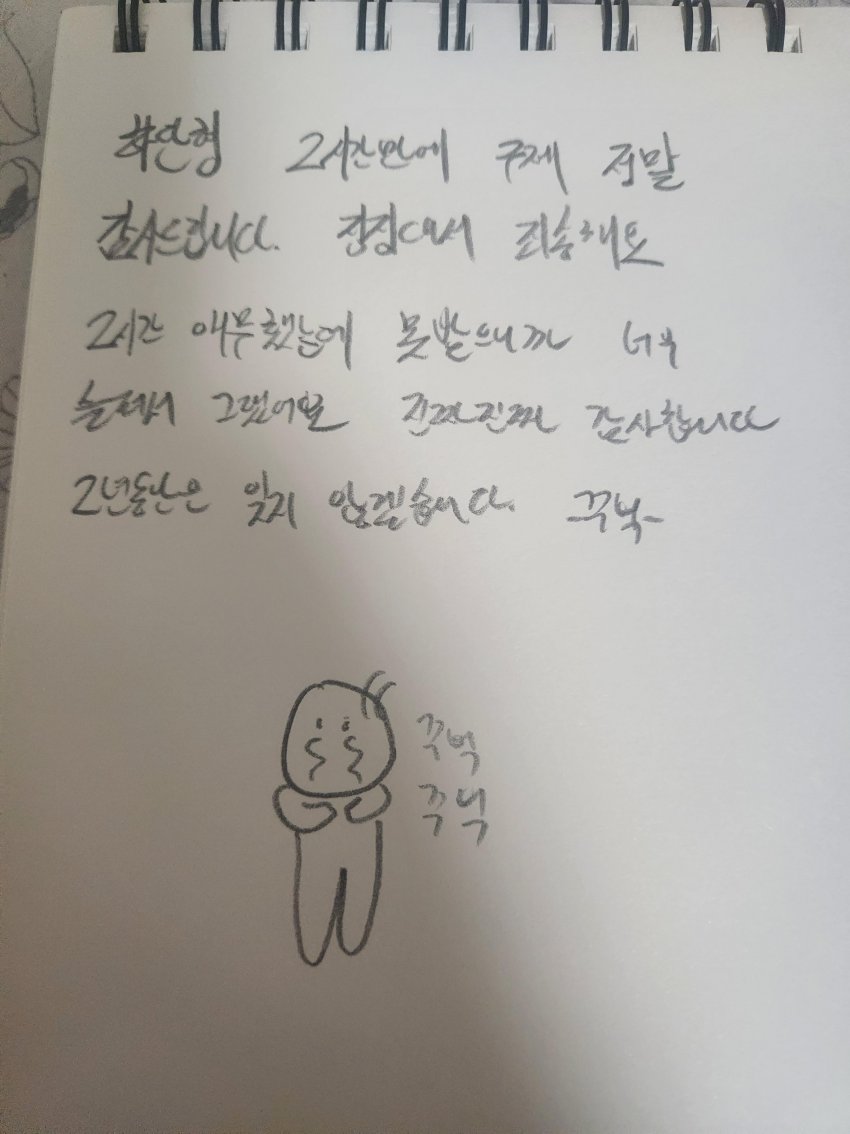 2시간만에 구제 정말
감사드립니다. 징징대서 죄송해요
2시간 애무했는데 못받으니까 너무
슬퍼서 그랬어요 진짜진짜 감사합니다
2년동안은 잊지 않겠습니다. 꾸벅-
꾸벅
꾸벅